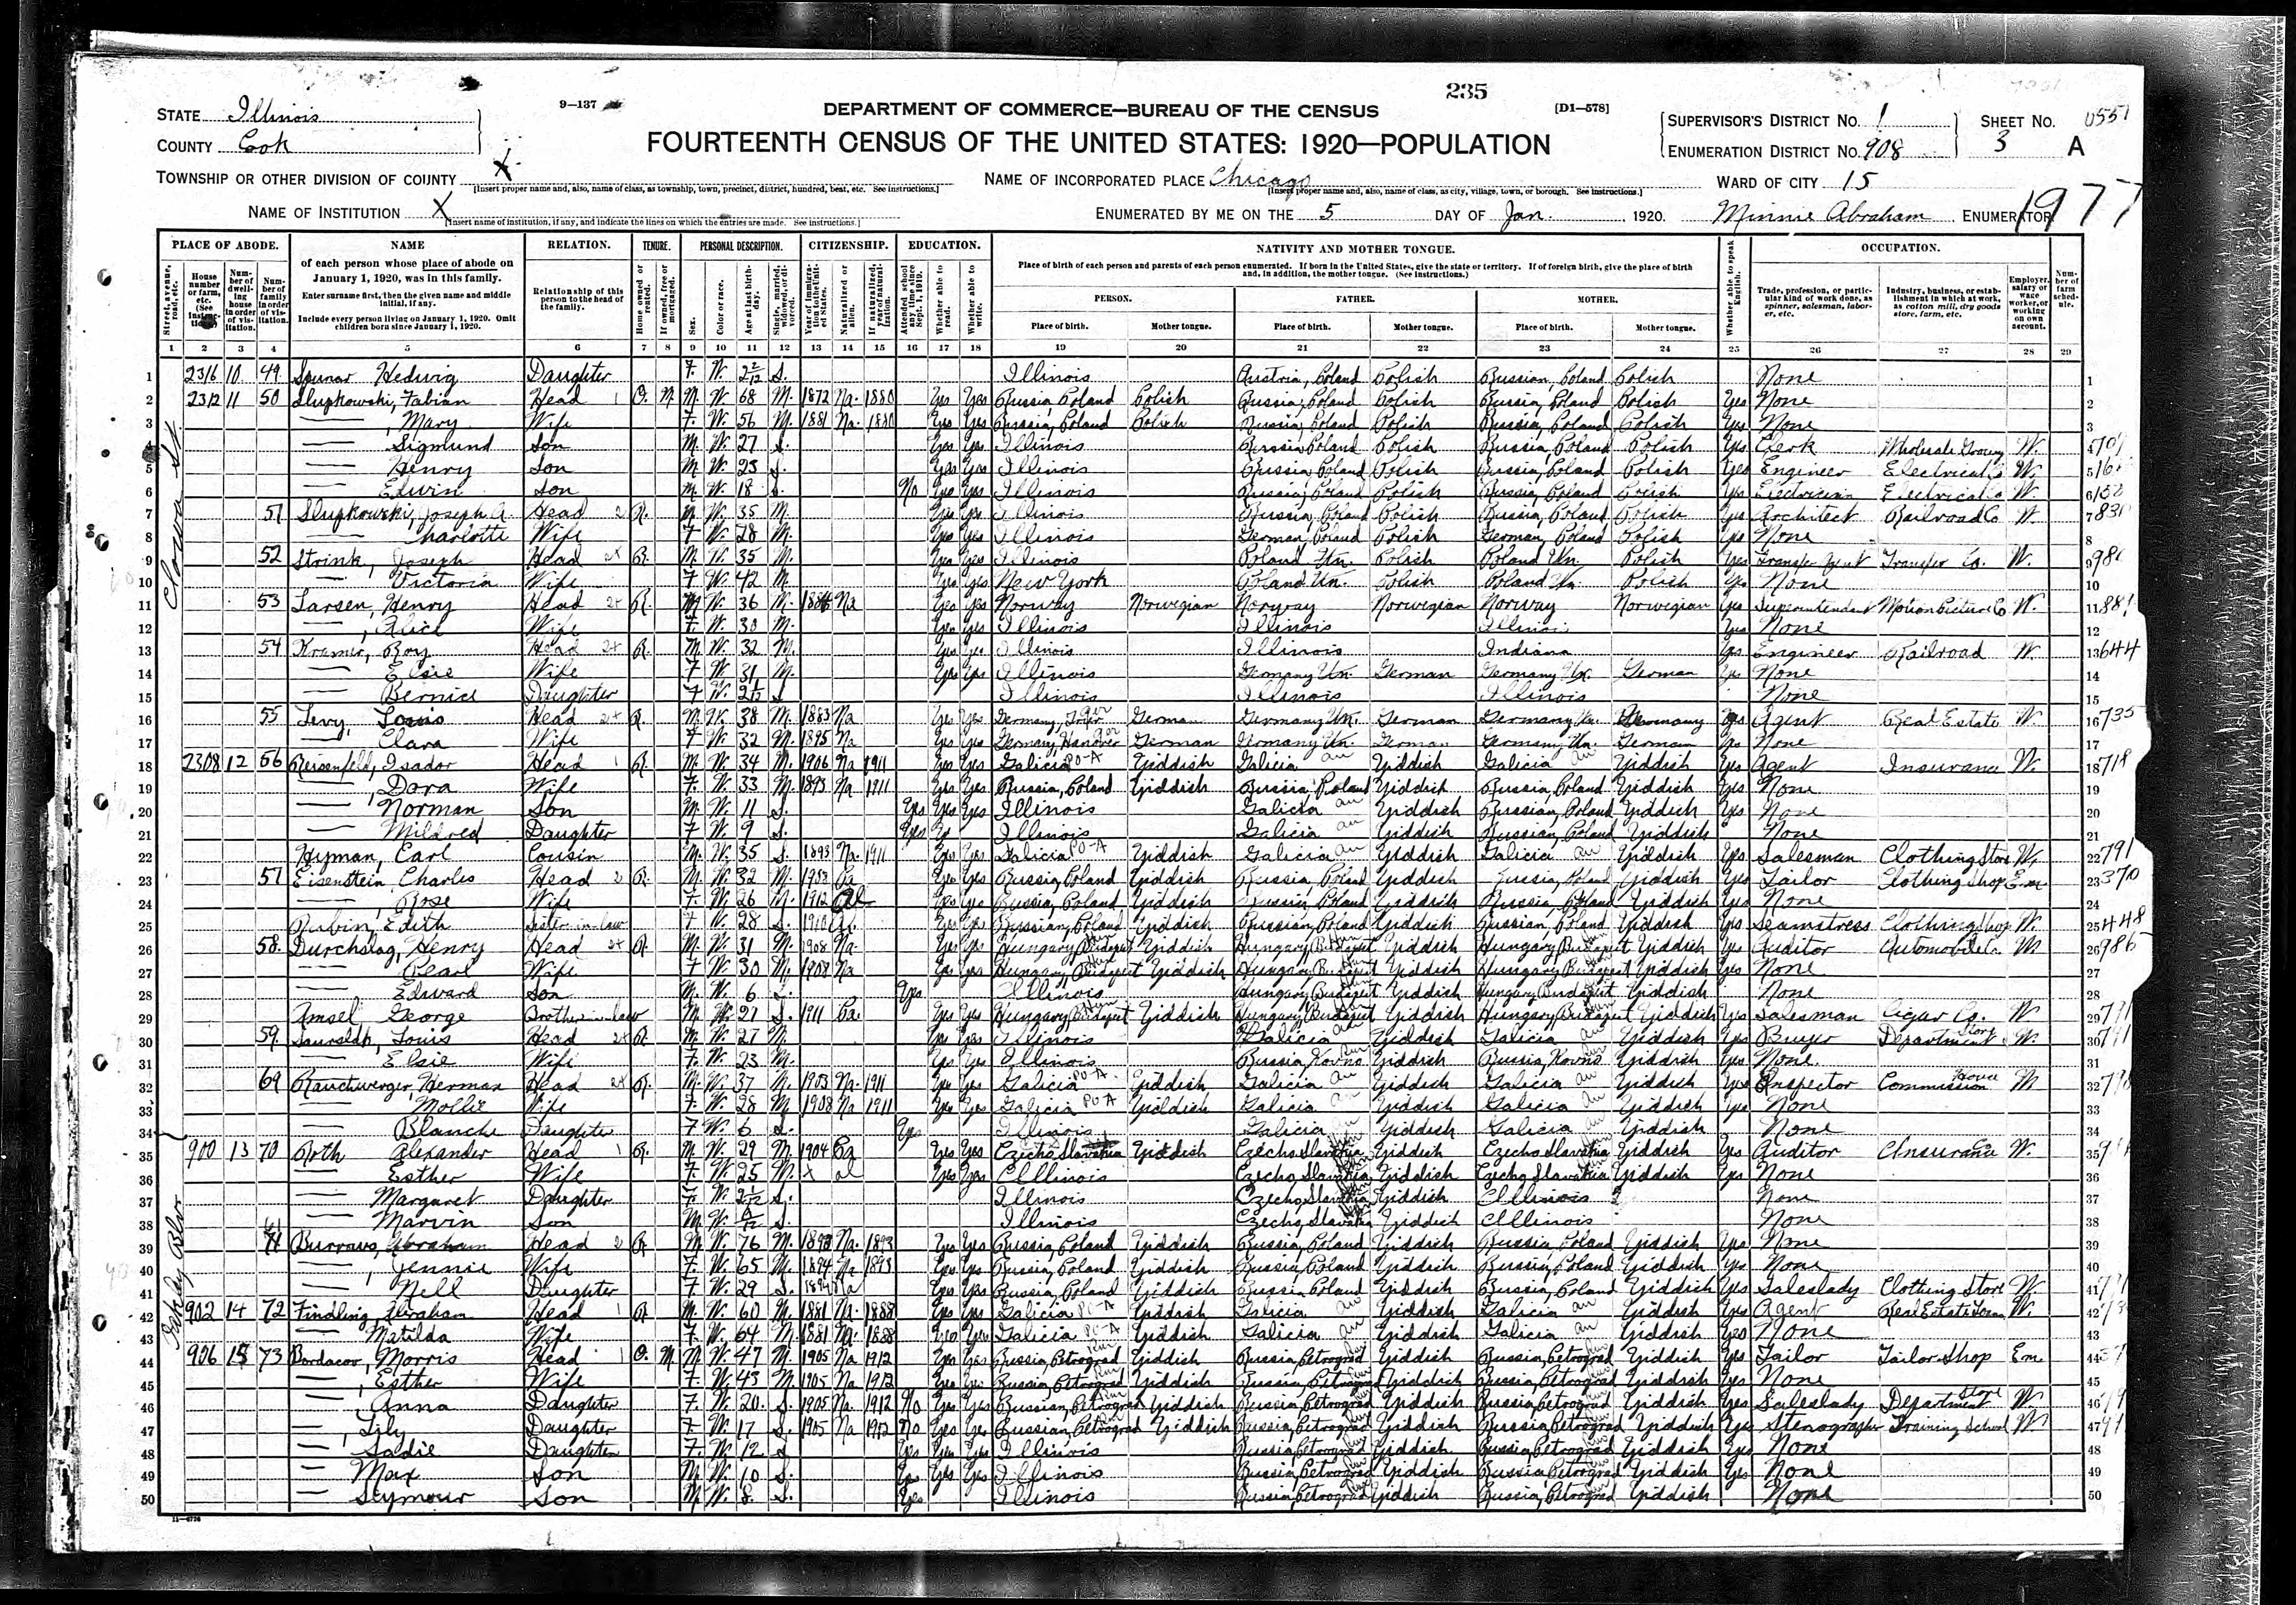 235
9-137
DEPARTMENT OF COMMERCE—BUREAU OF THE CENSUS
[D1-578]
FOURTEENTH CENSUS OF THE UNITED STATES: 1920—POPULATION
STATE Illinois
COUNTY Cook
SUPERVISOR'S DISTRICT No. 1
ENUMERATION DISTRICT No. 908
SHEET No. 3 A
TOWNSHIP OR OTHER DIVISION OF COUNTY X
[Insert proper name and, also, name of class, as township, town, precinct, district, hundred, beat, etc. See instructions.]
NAME OF INCORPORATED PLACE Chicago
[Insert proper name and, also, name of class, as city, village, town, or borough. See instructions.]
WARD OF CITY 15
NAME OF INSTITUTION X
[Insert name of institution, if any, and indicate the lines on which the entries are made. See instructions.]
ENUMERATED BY ME ON THE 5 DAY OF Jan. 1920. Minnie Abraham ENUMERATOR
1977
PLACE OF ABODE. NAME RELATION. TENURE. PERSONAL DESCRIPTION. CITIZENSHIP. EDUCATION. NATIVITY AND MOTHER TONGUE. OCCUPATION.
of each person whose place of abode on January 1, 1920, was in this family.
Enter surname first, then the given name and middle initial, if any.
Include every person living on January 1, 1920. Omit children born since January 1, 1920.
Relationship of this person to the head of the family.
Place of birth of each person and parents of each person enumerated. If born in the United States, give the state or territory. If of foreign birth, give the place of birth and, in addition, the mother tongue. (See instructions.)
PERSON. FATHER. MOTHER.
Place of birth. Mother tongue. Place of birth. Mother tongue. Place of birth. Mother tongue.
1 2 3 4 5 6 7 8 9 10 11 12 13 14 15 16 17 18 19 20 21 22 23 24 25 26 27 28 29
1 2316 10 49 Hedwig Daughter F. W. 2 2/12 S. Illinois Austria, Poland Polish Russian, Poland Polish None
2 2312 11 50 Slupkowski, Fabian Head 1 O. M M. W. 68 M. 1872 Na. 1880 Yes Yes Russia, Poland Polish Russia, Poland Polish Russia, Poland Polish Yes None
3 Mary Wife F. W. 56 M. 1881 Na. 1880 Yes Yes Russia, Poland Polish Russia, Poland Polish Russia, Poland Polish Yes None
4 Sigmund Son M. W. 27 S. Yes Yes Illinois Russia Poland Polish Russia, Poland Polish Yes Clerk Wholesale Grocery W.
5 Henry Son M. W. 23 S. Yes Yes Illinois Russia, Poland Polish Russia, Poland Polish Yes Engineer Electrical Co W.
6 Edwin Son M. W. 18 S. No Yes Yes Illinois Russia, Poland Polish Russia, Poland Polish Yes Electrician Electrical Co W.
7 51 Slupkowski, Joseph A. Head 2 R. M W. 35 M. Yes Yes Illinois Russia, Poland Polish Russia, Poland Polish Yes Architect Railroad Co W.
8 Charlotte Wife F W. 28 M. Yes Yes Illinois German, Poland Polish German, Poland Polish Yes None
9 52 Strink, Joseph Head R. M. W. 35 M. Yes Yes Illinois Poland Un. Polish Poland Un. Polish Yes Transfer Agent Transfer Co. W.
10 Victoria Wife F W. 42 M. Yes Yes New York Poland Un. Polish Poland Un. Polish Yes None
11 53 Larsen, Henry Head R. M W. 36 M. Na Yes Yes Norway Norwegian Norway Norwegian Norway Norwegian Yes Superintendent Motion Picture Co W.
12 Alice Wife F. W. 30 M. Yes Yes Illinois Illinois Illinois Yes None
13 54 Kramer, Roy Head R. M. W. 32 M. Yes Yes Illinois Illinois Indiana Yes Engineer Railroad W. 644
14 Elsie Wife F W. 31 M. Yes Yes Illinois Germany Un. German Germany Un. German Yes None
15 Bernice Daughter F W. S Illinois Illinois Illinois None
16 55 Levy, Louis Head R. M. W. 38 M. 1883 Na Yes Yes Germany German Germany Un. German Germany Un. Germany Yes Agent Real Estate W. 735
17 Clara Wife F W. 32 M. 1895 Na Yes Yes Germany, Hanover German Germany Un. German Germany Un. German Yes None
18 2308 12 56 Reisenfeld, Isador Head 1 R. M. W. 34 M. 1906 Na 1911 Yes Yes Galicia PO-A Yiddish Galicia au Yiddish Galicia au Yiddish Yes Agent Insurance W. 718
19 Dora Wife F. W. 33 M. 1893 Na 1911 Yes Yes Russia, Poland Yiddish Russia, Poland Yiddish Russia, Poland Yiddish Yes None
20 Norman Son M. W. 11 S. Yes Yes Yes Illinois Galicia au Yiddish Russian, Poland Yiddish Yes None
21 Mildred Daughter F W. 9 S. Yes Illinois Galicia au Yiddish Russian, Poland Yiddish None
22 Hyman, Carl Cousin M. W. 35 S. 1893 Na. 1911 Yes Yes Galicia PO-A Yiddish Galicia au Yiddish Galicia au Yiddish Yes Salesman Clothing Store W. 791
23 57 Eisenstein, Charles Head 2 R. M. W. 32 M. Yes Yes Russia, Poland Yiddish Russia, Poland Yiddish Russia, Poland Yiddish Yes Tailor Clothing Shop Em 370
24 Rose Wife F W. 26 M. 1912 Al Yes Yes Russia, Poland Yiddish Russia, Poland Yiddish Russia, Poland Yiddish Yes None
25 Rubin, Edith Sister-in-law F W. 28 S. 1910 Al. Yes Yes Russian, Poland Yiddish Russian, Poland Yiddish Russian, Poland Yiddish Yes Seamstress Clothing Shop W. 448
26 58 Durchslag, Henry Head R. M. W. 31 M. 1908 Na. Yes Yes Hungary, Budapest Yiddish Hungary, Budapest Yiddish Hungary, Budapest Yiddish Yes Auditor Automobile Co. W 986
27 Pearl Wife F W. 30 M. 1908 Na Yes Yes Hungary, Budapest Yiddish Hungary, Budapest Yiddish Hungary, Budapest Yiddish Yes None
28 Edward Son M. W. 6 S. Yes Illinois Hungary, Budapest Yiddish Hungary, Budapest Yiddish None
29 Amsel George Brother-in-law M W. 27 S. 1911 Pa. Yes Yes Hungary, Budapest Yiddish Hungary, Budapest Yiddish Hungary, Budapest Yiddish Yes Salesman Cigar Co. W
30 59 Louis Head R. M. W. 27 M. Yes Yes Illinois Galicia au Yiddish Galicia au Yiddish Yes Buyer Department Store W.
31 Elsie Wife F. W. 23 M. Yes Yes Illinois Russia, Kovno Yiddish Russia, Kovno Yiddish Yes None
32 69 Rauchwerger, Herman Head R. M. W. 37 M. 1903 Na. 1911 Yes Yes Galicia PO-A Yiddish Galicia au Yiddish Galicia au Yiddish Yes Inspector Commission House W
33 Mollie Wife F. W. 28 M 1908 Na 1911 Yes Yes Galicia PO-A Yiddish Galicia au Yiddish Galicia au Yiddish Yes None
34 Blanche Daughter F W. 6 S. Yes Illinois Galicia Yiddish Galicia Yiddish None
35 900 13 70 Roth Alexander Head 1 R. M. W. 29 M. 1904 Pa Yes Yes Czecho Slavakia Yiddish Czecho Slavakia Yiddish Czecho Slavakia Yiddish Yes Auditor Insurance Co W.
36 Esther Wife F W. 25 M. X al Yes Yes Illinois Czecho Slavakia Yiddish Czecho Slavakia Yiddish Yes None
37 Margaret Daughter F. W. S. Illinois Czecho Slavakia Yiddish Illinois None
38 Marvin Son M. W. S. Illinois Czecho Slavakia Yiddish Illinois None
39 Burrows, Abraham Head 2 R. M W. 76 M. Na. 1893 Yes Yes Russia, Poland Yiddish Russia, Poland Yiddish Russia, Poland Yiddish Yes None
40 Jennie Wife F. W. 65 M. 1894 Na 1893 Yes Yes Russia, Poland Yiddish Russia, Poland Yiddish Russia, Poland Yiddish Yes None
41 Nell Daughter F W. 29 S. 1894 Na Yes Yes Russia, Poland Yiddish Russia Poland Yiddish Russia, Poland Yiddish Yes Saleslady Clothing Store W.
42 902 14 72 Findling, Abraham Head 1 R. M. W. 60 M. 1881 Na. 1888 Yes Yes Galicia PO-A Yiddish Galicia au Yiddish Galicia au Yiddish Yes Agent Real Estate Loan W.
43 Matilda Wife F. W. 64 M 1881 Na. 1888 Yes Yes Galicia PO-A Yiddish Galicia au Yiddish Galicia au Yiddish Yes None
44 906 15 73 Bordacov, Morris Head 1 O. M M W. 47 M. 1905 Na 1912 Yes Yes Russia, Petrograd Yiddish Russia, Petrograd Yiddish Russia, Petrograd Yiddish Yes Tailor Tailor Shop Em.
45 Esther Wife F. W. 43 M. 1905 Na. 1912 Yes Yes Russia, Petrograd Yiddish Russia, Petrograd Yiddish Russia, Petrograd Yiddish Yes None
46 Anna Daughter F. W. 20. S. 1905 Na. 1912 No Yes Yes Russian, Petrograd Yiddish Russia, Petrograd Yiddish Russia, Petrograd Yiddish Yes Saleslady Department Store W.
47 Lily Daughter F W. 17 S. 1905 Na 1912 No Yes Yes Russian, Petrograd Yiddish Russia, Petrograd Yiddish Russia, Petrograd Yiddish Yes Stenographer Training School W
48 Sadie Daughter F. W. 12 S Yes Yes Yes Illinois Russia, Petrograd Yiddish Russia, Petrograd Yiddish Yes None
49 Max Son M. W. 10 S. Yes Yes Yes Illinois Russia, Petrograd Yiddish Russia, Petrograd Yiddish Yes None
50 Seymour Son M W. 8. S. Yes Illinois Russia, Petrograd Yiddish Russia, Petrograd Yiddish None